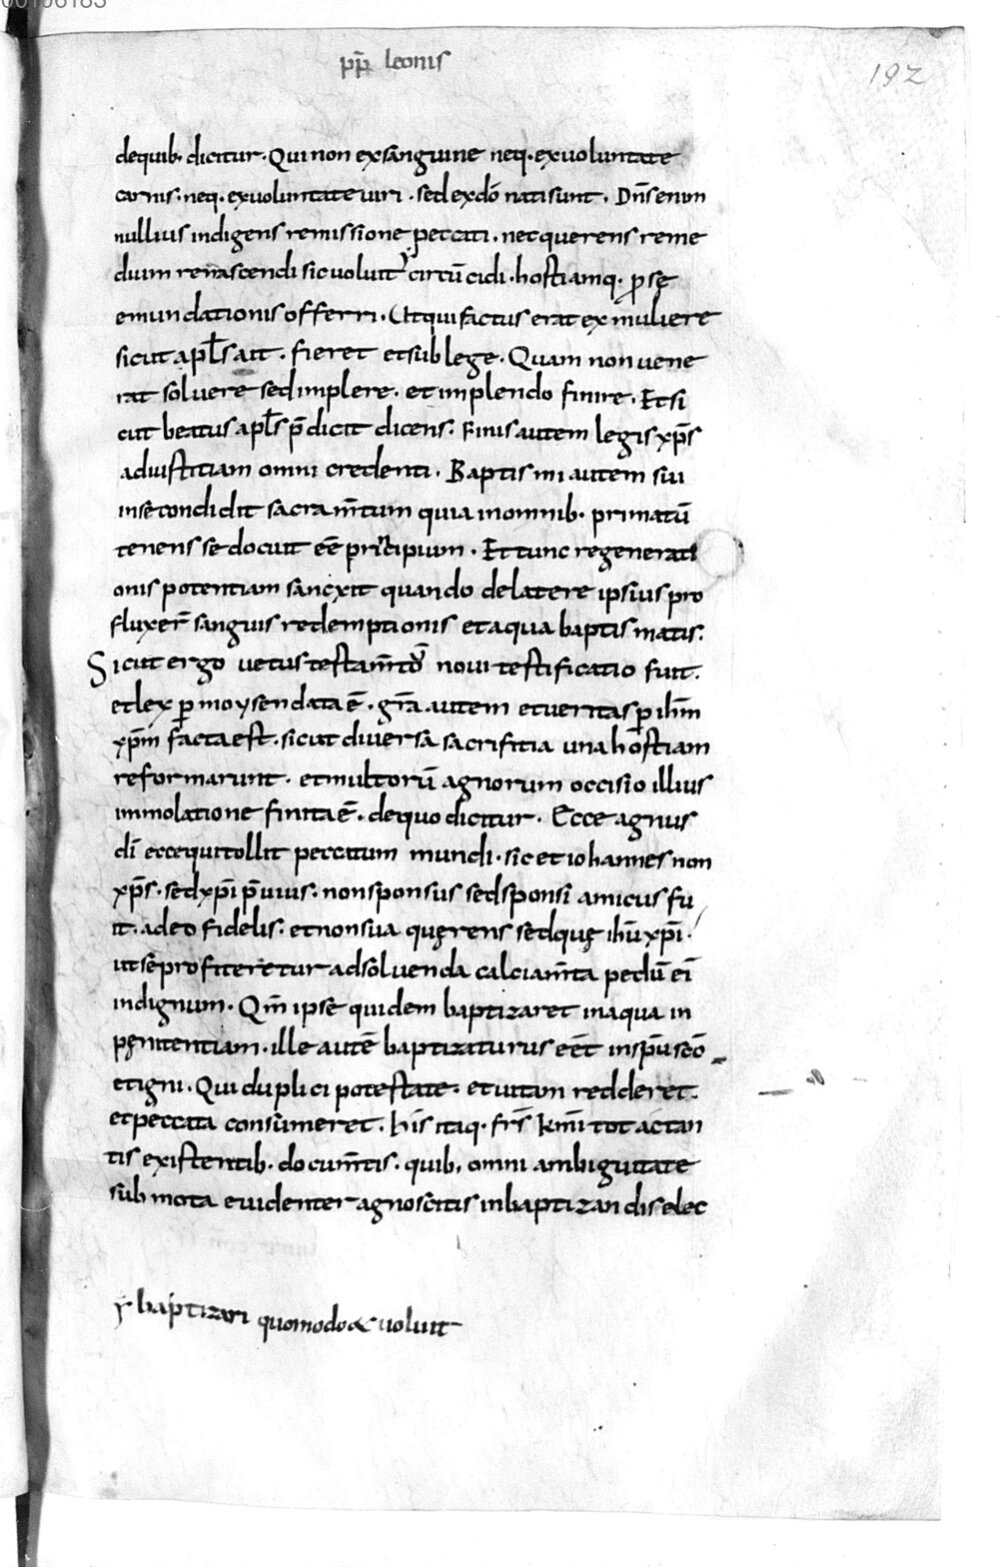 00106183
pp̄ leonis
192
dequib· dicitur· Qui non exsanguine neq· exuoluntate
carnis· neq· exuoluntate uiri · sed exdō nati sunt · Dn̄s enim
nullius indigens remissione peccati · nec querens reme
dium renascendi sic uoluit circū cidi · hostiamq· ꝓ se
emundationis offerri · Ut qui factus erat ex muliere
sicut apl̄s ait · fieret et sub lege · Quam non uene
rat soluere sed implere · et implendo finire · Et si
cut beatus apl̄s p̄dicit dicens · Finis autem legis xp̄s
ad iustitiam omni credenti · Baptismi autem sui
inse condidit sacram̄tum quia in omnib· primatū
tenens se docuit eē principium · Et tunc regenerati
onis potentiam sancxit quando de latere ipsius pro
fluxer̄ sanguis redemptionis et aqua baptismatis:
Sicut ergo uetus testam̄tū noui testificatio fuit·
et lex ꝑ moysen data ē · gr̄a autem et ueritas ꝑ ihm̄
xp̄m facta est · sicut diuersa sacrificia una hostiam
reformarunt · et multorū agnorum occisio illius
immolatione finita ē · de quo dicitur · Ecce agnus
dī ecce qui tollit peccatum mundi · sic et iohannes non
xp̄s · sed xp̄i p̄uius · non sponsus sed sponsi amicus fu
it · adeo fidelis · et non sua quęrens sed quę ihū xp̄i ·
ut se profiteretur ad soluenda calciam̄ta pedū eī
indignum · Qm̄ ipse quidem baptizaret in aqua in
pęnitentiam · ille autē baptizaturus eēt in sp̄u scō
et igni · Qui duplici potestate · et uitam redderet·
et peccata consumeret · his itaq· frs̄ km̄i tot ac tan
tis existentib· docum̄tis · quib· omni ambiguitate
submota euidenter agnoscitis in baptizandis elec
baptizari quomodo & uoluit